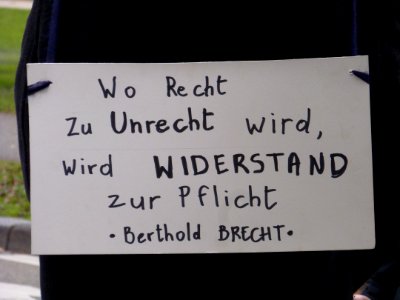 Wo Recht
Zu Unrecht wird,
wird WIDERSTAND
zur Pflicht
• Berthold BRECHT •